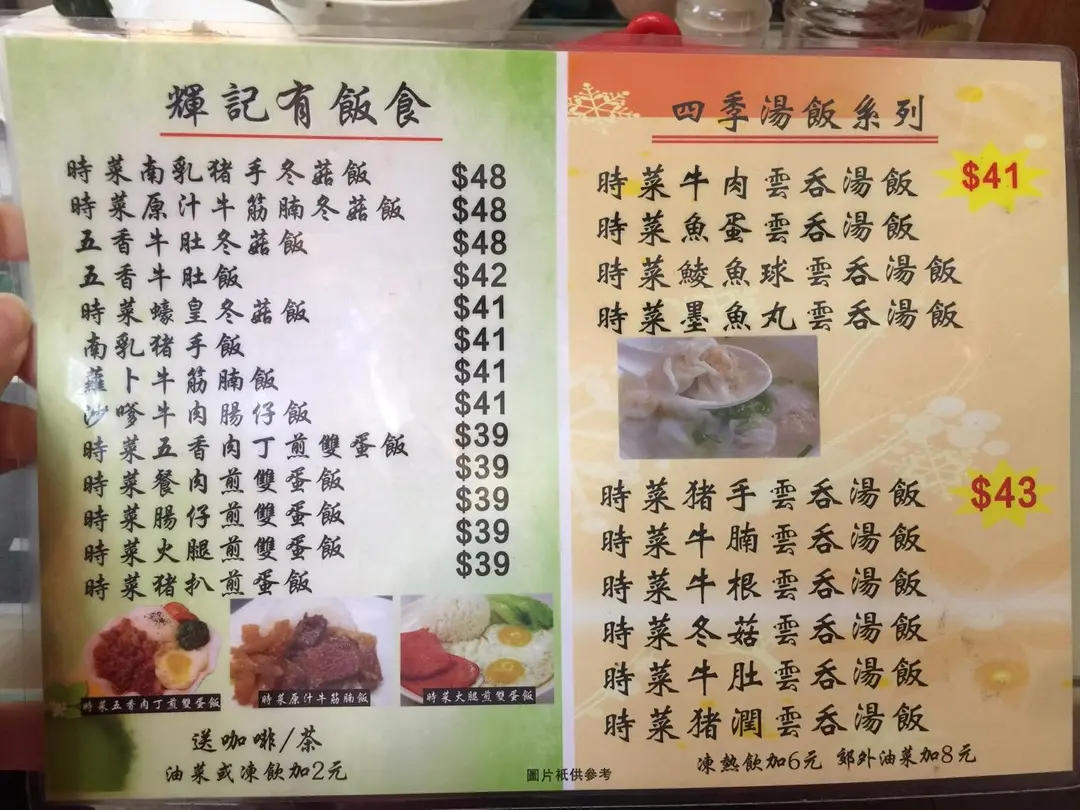 輝記有飯食
時菜南乳猪手冬菇飯 $48
時菜原汁牛筋腩冬菇飯 $48
五香牛肚冬菇飯 $48
五香牛肚飯 $42
時菜蠔皇冬菇飯 $41
南乳猪手飯 $41
蘿卜牛筋腩飯 $41
沙嗲牛肉腸仔飯 $41
時菜五香肉丁煎雙蛋飯 $39
時菜餐肉煎雙蛋飯 $39
時菜腸仔煎雙蛋飯 $39
時菜火腿煎雙蛋飯 $39
時菜猪扒煎蛋飯 $39
時菜五香肉丁煎雙蛋飯
時菜原汁牛筋腩飯
時菜火腿煎雙蛋飯
送咖啡/茶
油菜或凍飲加2元
四季湯飯系列
時菜牛肉雲吞湯飯 $41
時菜魚蛋雲吞湯飯
時菜鯪魚球雲吞湯飯
時菜墨魚丸雲吞湯飯
時菜猪手雲吞湯飯 $43
時菜牛腩雲吞湯飯
時菜牛根雲吞湯飯
時菜冬菇雲吞湯飯
時菜牛肚雲吞湯飯
時菜猪潤雲吞湯飯
凍熱飲加6元 郊外油菜加8元
圖片祇供參考